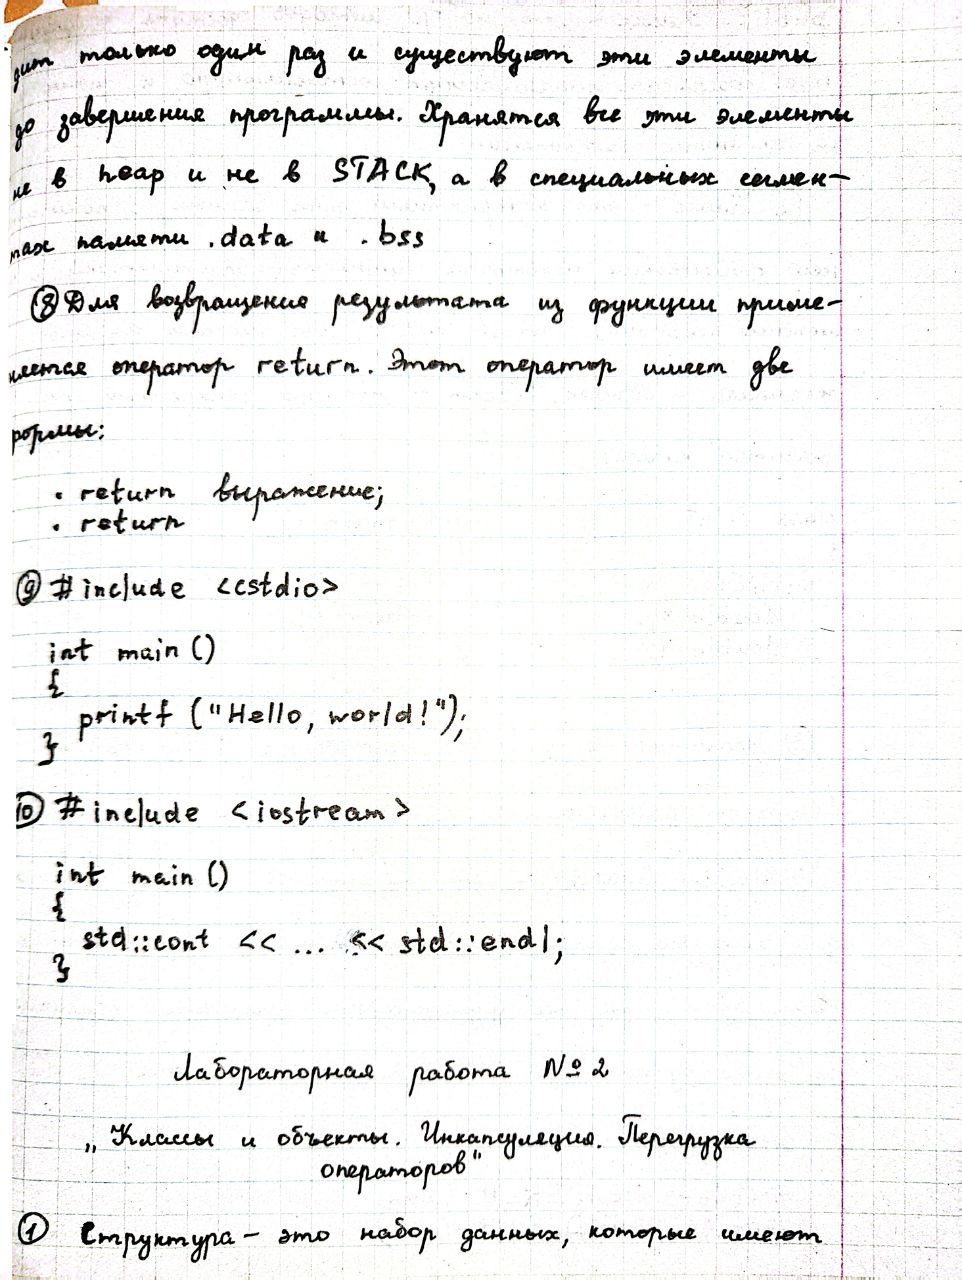 дит только один раз и существуют эти элементы
до завершения программы. Хранятся все эти элементы
не в heap и не в STACK, а в специальных сегмен-
тах памяти .data и .bss
⑧ Для возвращения результата из функции приме-
няется оператор return. Этот оператор имеет две
формы:
• return выражение;
• return
⑨ #include <cstdio>
int main ()
{
printf ("Hello, world!");
}
⑩ #include <iostream>
int main ()
{
std::cont << ... << std::endl;
}
Лабораторная работа № 2
„Классы и объекты. Инкапсуляция. Перегрузка
операторов"
① Структура – это набор данных, которые имеют